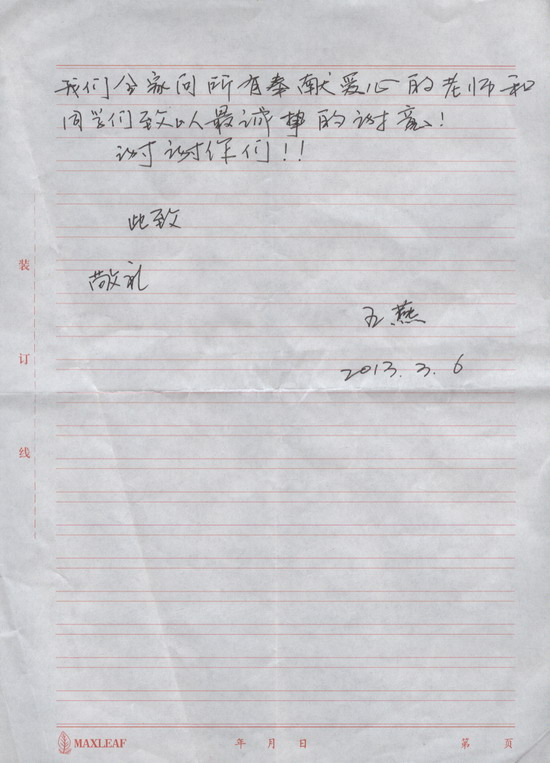 我们全家向所有奉献爱心的老师和
同学们致以最诚挚的谢意!
谢谢你们!!
此致
敬礼
王燕
2013.3.6
装
订
线
MAXLEAF
年 月 日
第 页